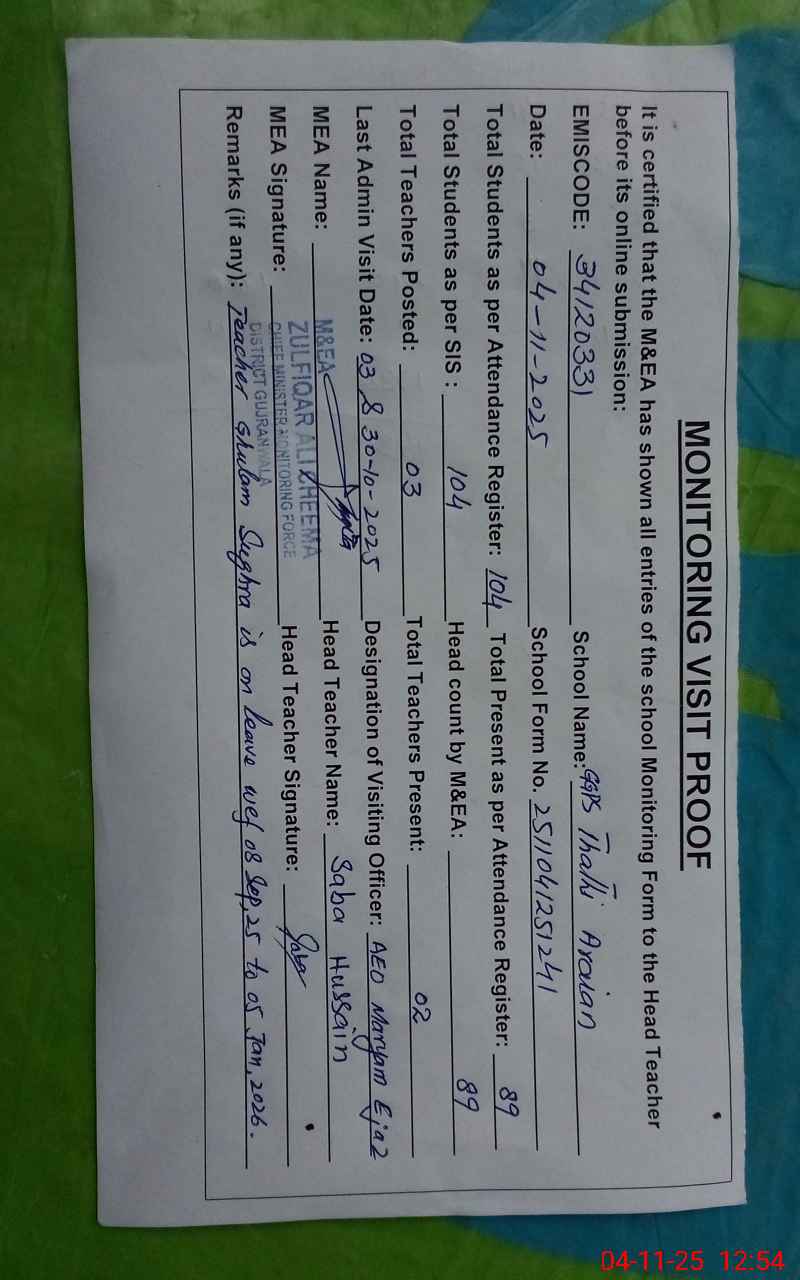 MONITORING VISIT PROOF
It is certified that the M&EA has shown all entries of the school Monitoring Form to the Head Teacher
before its online submission:
EMISCODE: 34120331 School Name: GGPS Thathi Araian
Date: 04-11-2025 School Form No. 2511041251241
Total Students as per Attendance Register: 104 Total Present as per Attendance Register: 89
Total Students as per SIS : 104 Head count by M&EA: 89
Total Teachers Posted: 03 Total Teachers Present: 02
Last Admin Visit Date: 03 & 30-10-2025 Designation of Visiting Officer: AEO Maryam Ejaz
MEA Name: Head Teacher Name: Saba Hussain
M&EA
ZULFIQAR ALI CHEEMA
CHIEF MINISTER MONITORING FORCE
DISTRICT GUJRANWALA
MEA Signature: Head Teacher Signature: Saba
Remarks (if any): Teacher Ghulam Sughra is on leave wef 08 Sep, 25 to 05 Jan, 2026.
04-11-25 12:54